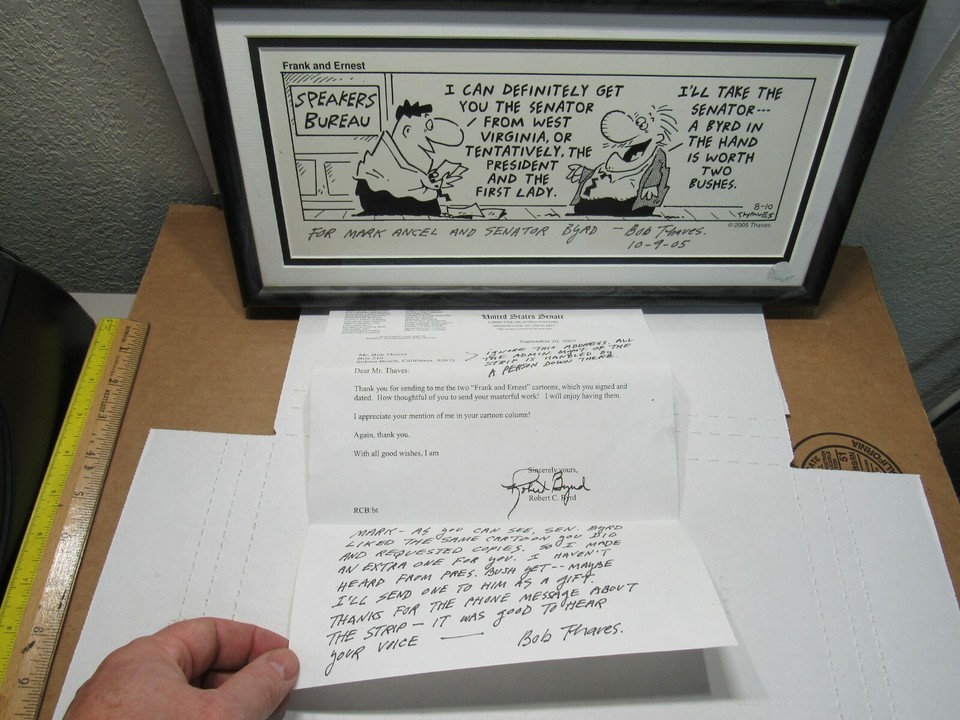 Frank and Ernest
SPEAKERS
BUREAU
I CAN DEFINITELY GET
YOU THE SENATOR
FROM WEST
VIRGINIA, OR
TENTATIVELY, THE
PRESIDENT
AND THE
FIRST LADY.
I'LL TAKE THE
SENATOR---
A BYRD IN
THE HAND
IS WORTH
TWO
BUSHES.
8-10
THAVES
© 2005 Thaves
FOR MARK ANGEL AND SENATOR BYRD — BOB THAVES.
10-9-05
United States Senate
COMMITTEE ON APPROPRIATIONS
September 29, 2005
Mr. Bob Thaves
Dear Mr. Thaves:
> IGNORE THIS ADDRESS. ALL
THE ADMIN. MGMT. OF THE
STRIP IS HANDLED BY
A PERSON DOWN THERE.
Thank you for sending to me the two "Frank and Ernest" cartoons, which you signed and
dated. How thoughtful of you to send your masterful work! I will enjoy having them.
I appreciate your mention of me in your cartoon column!
Again, thank you.
With all good wishes, I am
Sincerely yours,
Robert Byrd
Robert C. Byrd
RCB:bt
MARK — AS YOU CAN SEE, SEN. BYRD
LIKED THE SAME CARTOON YOU DID
AND REQUESTED COPIES. SO I MADE
AN EXTRA ONE FOR YOU. I HAVEN'T
HEARD FROM PRES. BUSH YET -- MAYBE
I'LL SEND ONE TO HIM AS A GIFT.
THANKS FOR THE PHONE MESSAGE ABOUT
THE STRIP — IT WAS GOOD TO HEAR
YOUR VOICE — BOB THAVES.
CALIFORNIA